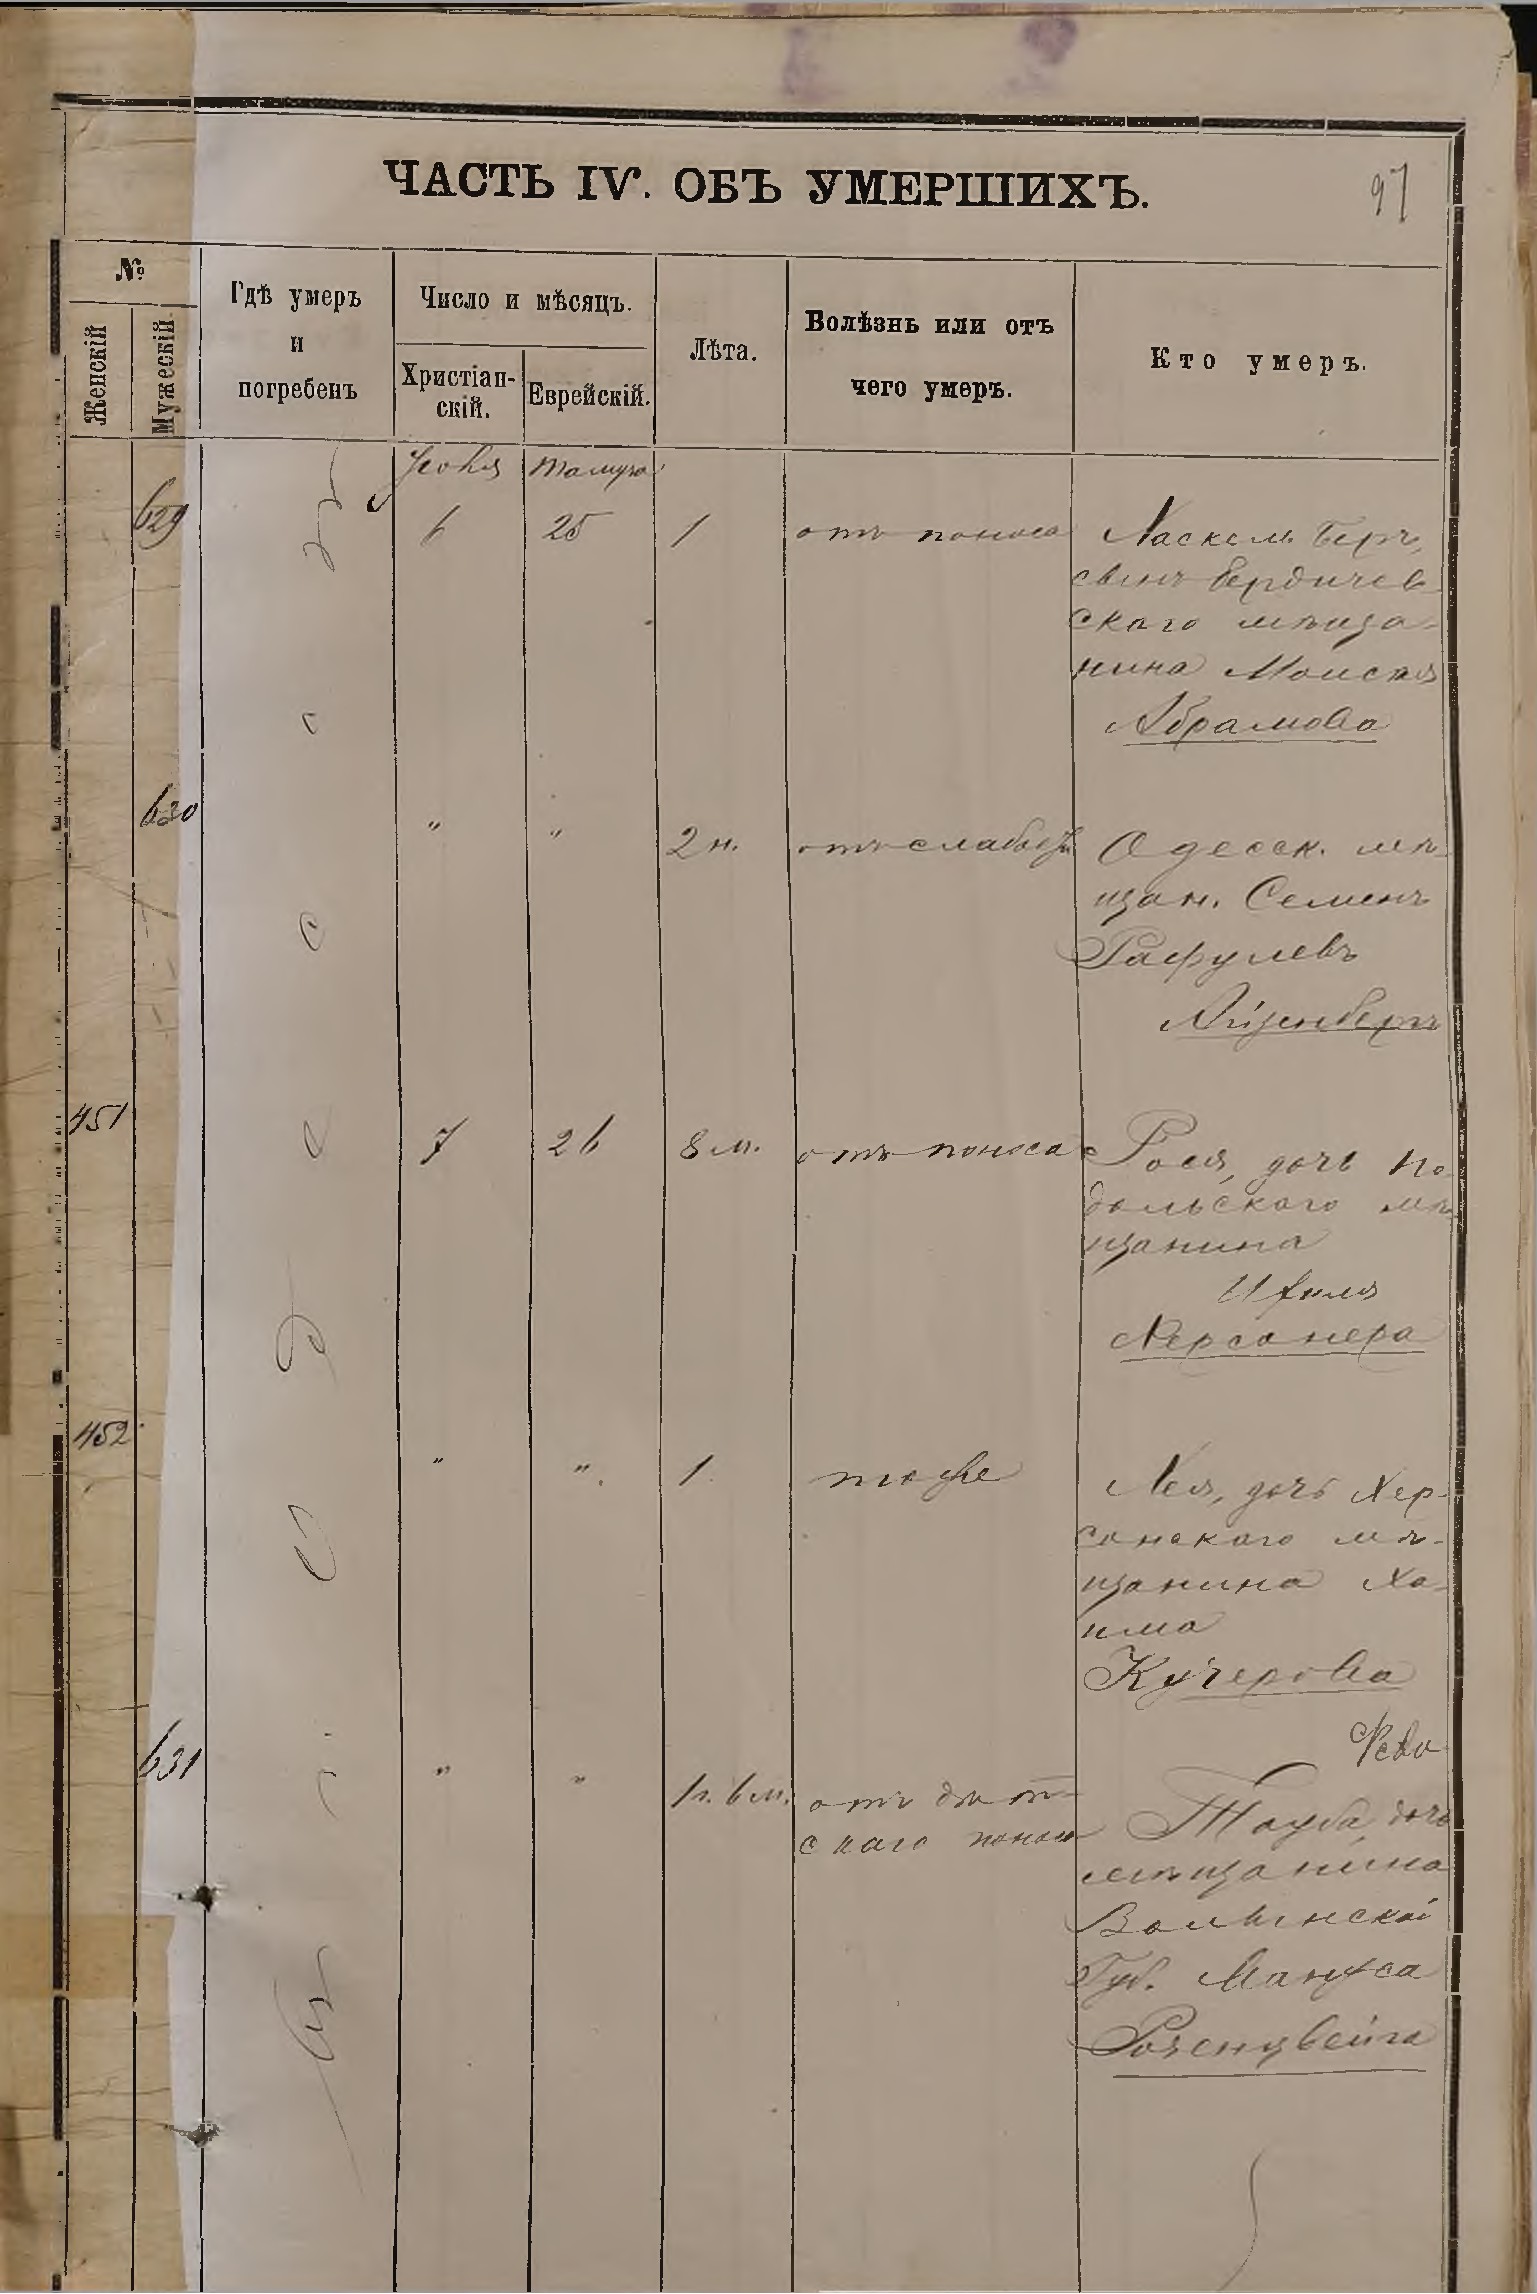 ЧАСТЬ IV. ОБЪ УМЕРШИХЪ.
97
№
Женскій
Мужескій
Гдѣ умеръ
и
погребенъ
Число и мѣсяцъ.
Христіан-
скій.
Еврейскій.
Лѣта.
Болѣзнь или отъ
чего умеръ.
Кто умеръ.
въ Одессѣ
Іюля
Тамуза
629
6
25
1
отъ поноса
Хаскель Беръ,
сынъ Бердичев
скаго мѣща-
нина Моисея
Абрамова
630
"
"
2 н.
отъ слабости
Одесск. мѣ-
щан. Семенъ
Рафулевъ
Айзенбергъ
451
7
26
8 м.
отъ поноса
Рося, дочь По-
дольского мѣ
щанина
Ихиля
Херсонера
452
"
"
1
тоже
Лея, дочь Хер-
сонскаго мѣ-
щанина Ха-
има
Кучерова
631
"
"
1 г. 6 м.
отъ дѣт-
скаго поноса
Тауба, дочь
мѣщанина
Волынской
Губ. Мануса
Розенцвейга